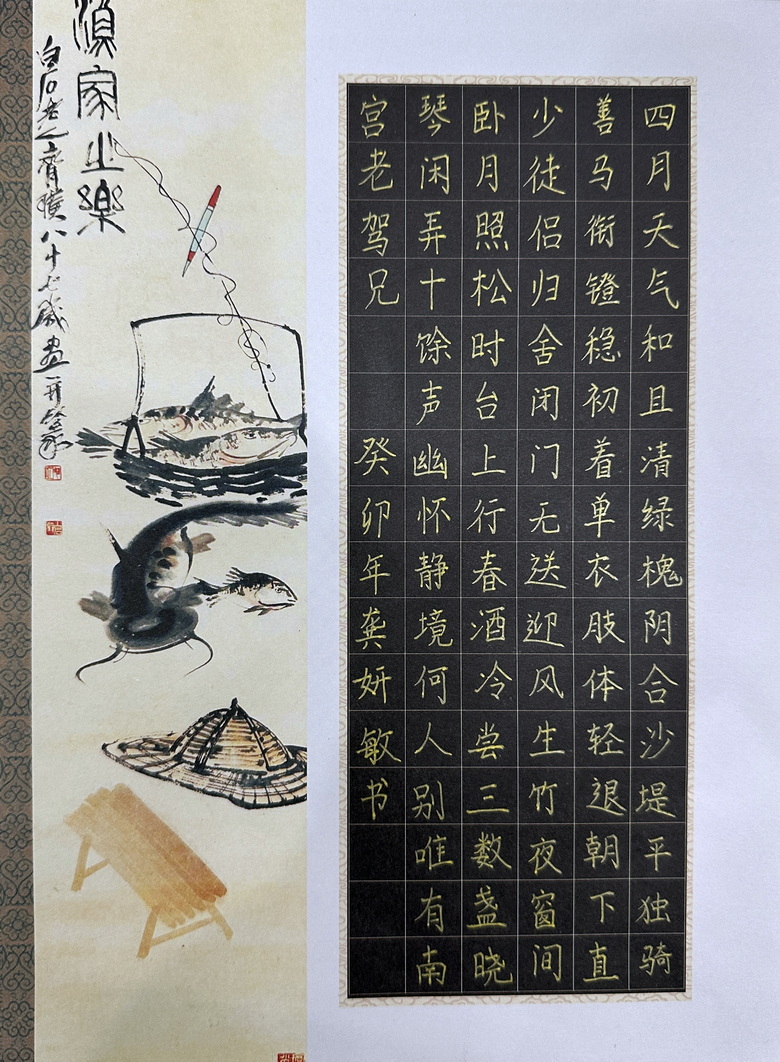 四月天气和且清绿槐阴合沙堤平独骑
善马衔镫稳初着单衣肢体轻退朝下直
少徒侣归舍闭门无送迎风生竹夜窗间
卧月照松时台上行春酒冷尝三数盏晓
琴闲弄十馀声幽怀静境何人别唯有南
宫老驾兄 癸卯年龚妍敏书
漁家之樂
白石老人齊璜八十七歲畫并篆